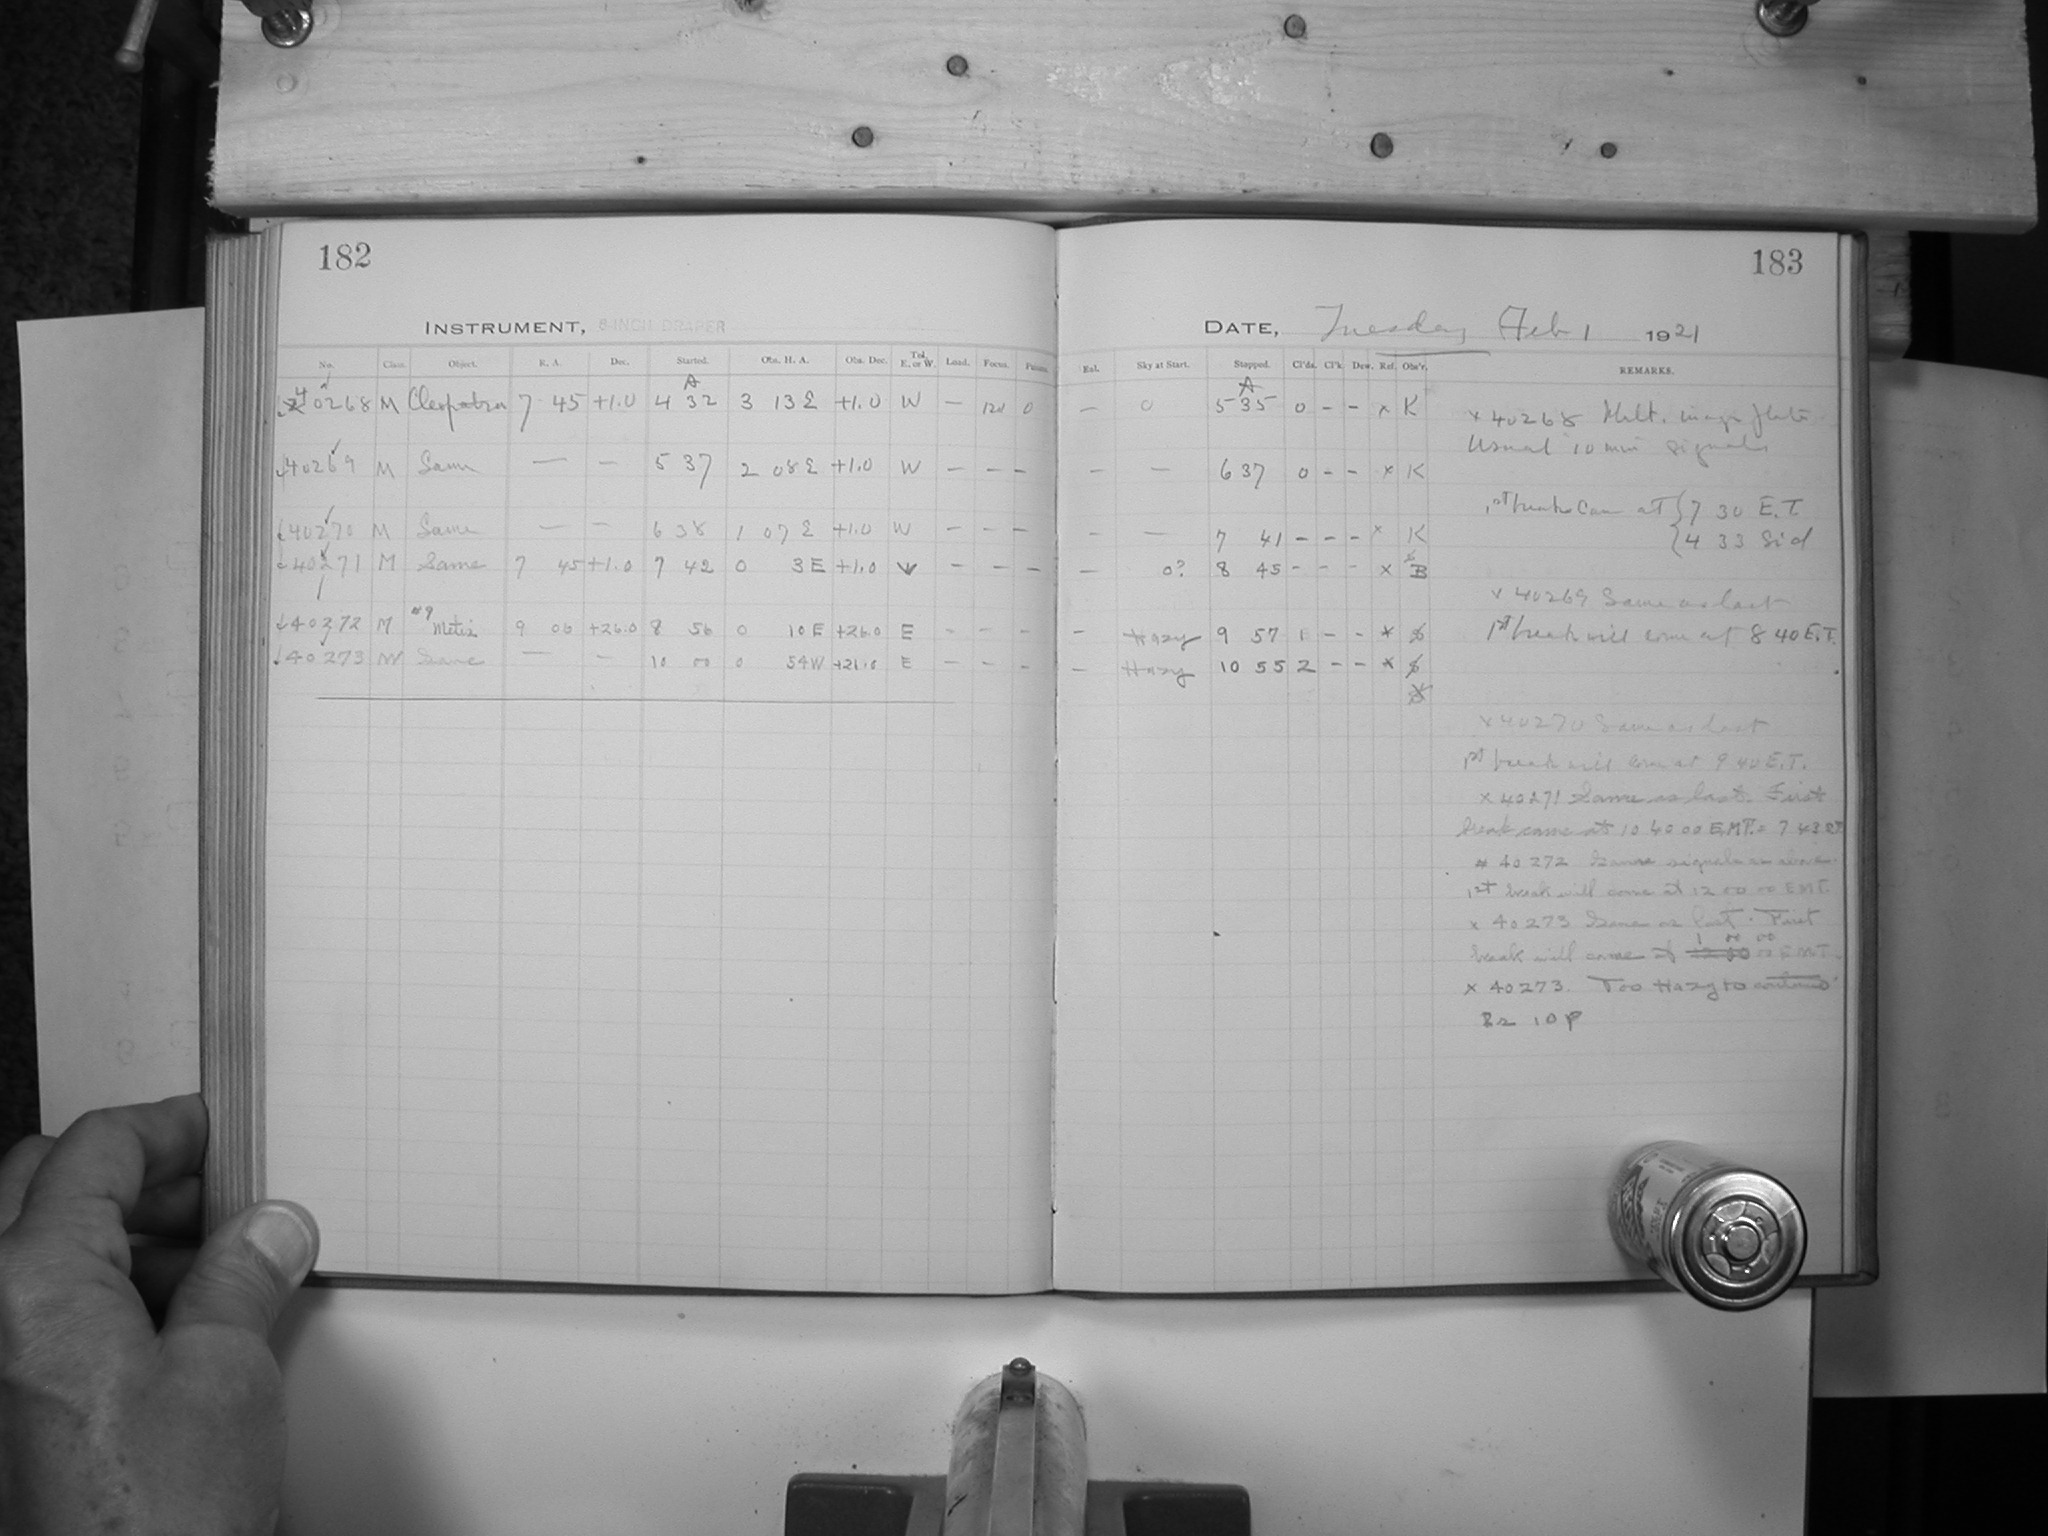 182
183
INSTRUMENT, 8-INCH DRAPER
DATE, Tuesday Feb 1 1921
No. Class. Object. R. A. Dec. Started. Obs. H. A. Obs. Dec. Tel. E. or W. Load. Focus.
Sky at Start. Stopped. Cl'ds. Cl'k. Dew. Ref. Obs'r. REMARKS.
A
A
40268 M Cleopatra 7 45 +1.0 4 32 3 13 E +1.0 W — 121 0 — 0 5 35 0 - - x K
40269 M Same — — 5 37 2 08 E +1.0 W - - - - — 6 37 0 - - x K
40270 M Same — — 6 38 1 07 E +1.0 W - - - - — 7 41 - - - x K
40271 M Same 7 45 +1.0 7 42 0 3 E +1.0 W - - - — 0? 8 45 - - - x B
40272 M #9 Metis 9 06 +26.0 8 56 0 10 E +26.0 E - - - - Hazy 9 57 1 - - x
40273 M Same — — 10 00 0 54 W +26.0 E - - - — Hazy 10 55 2 - - x
x 40268 Mult. image plate
Usual 10 min signals
1st break came at 7 30 E.T
4 33 Sid
x 40269 Same as last
1st break will come at 8 40 E.T.
x 40270 Same as last
1st break will come at 9 40 E.T.
x 40271 Same as last. First
break came at 10 40 00 E.M.T. = 7 43 S.T.
x 40272 Same signals as above.
1st break will come at 12 00 00 E.M.T.
x 40273 Same as last. First
1 00 00
break will come at E.M.T.
x 40273. Too Hazy to continue
10 P